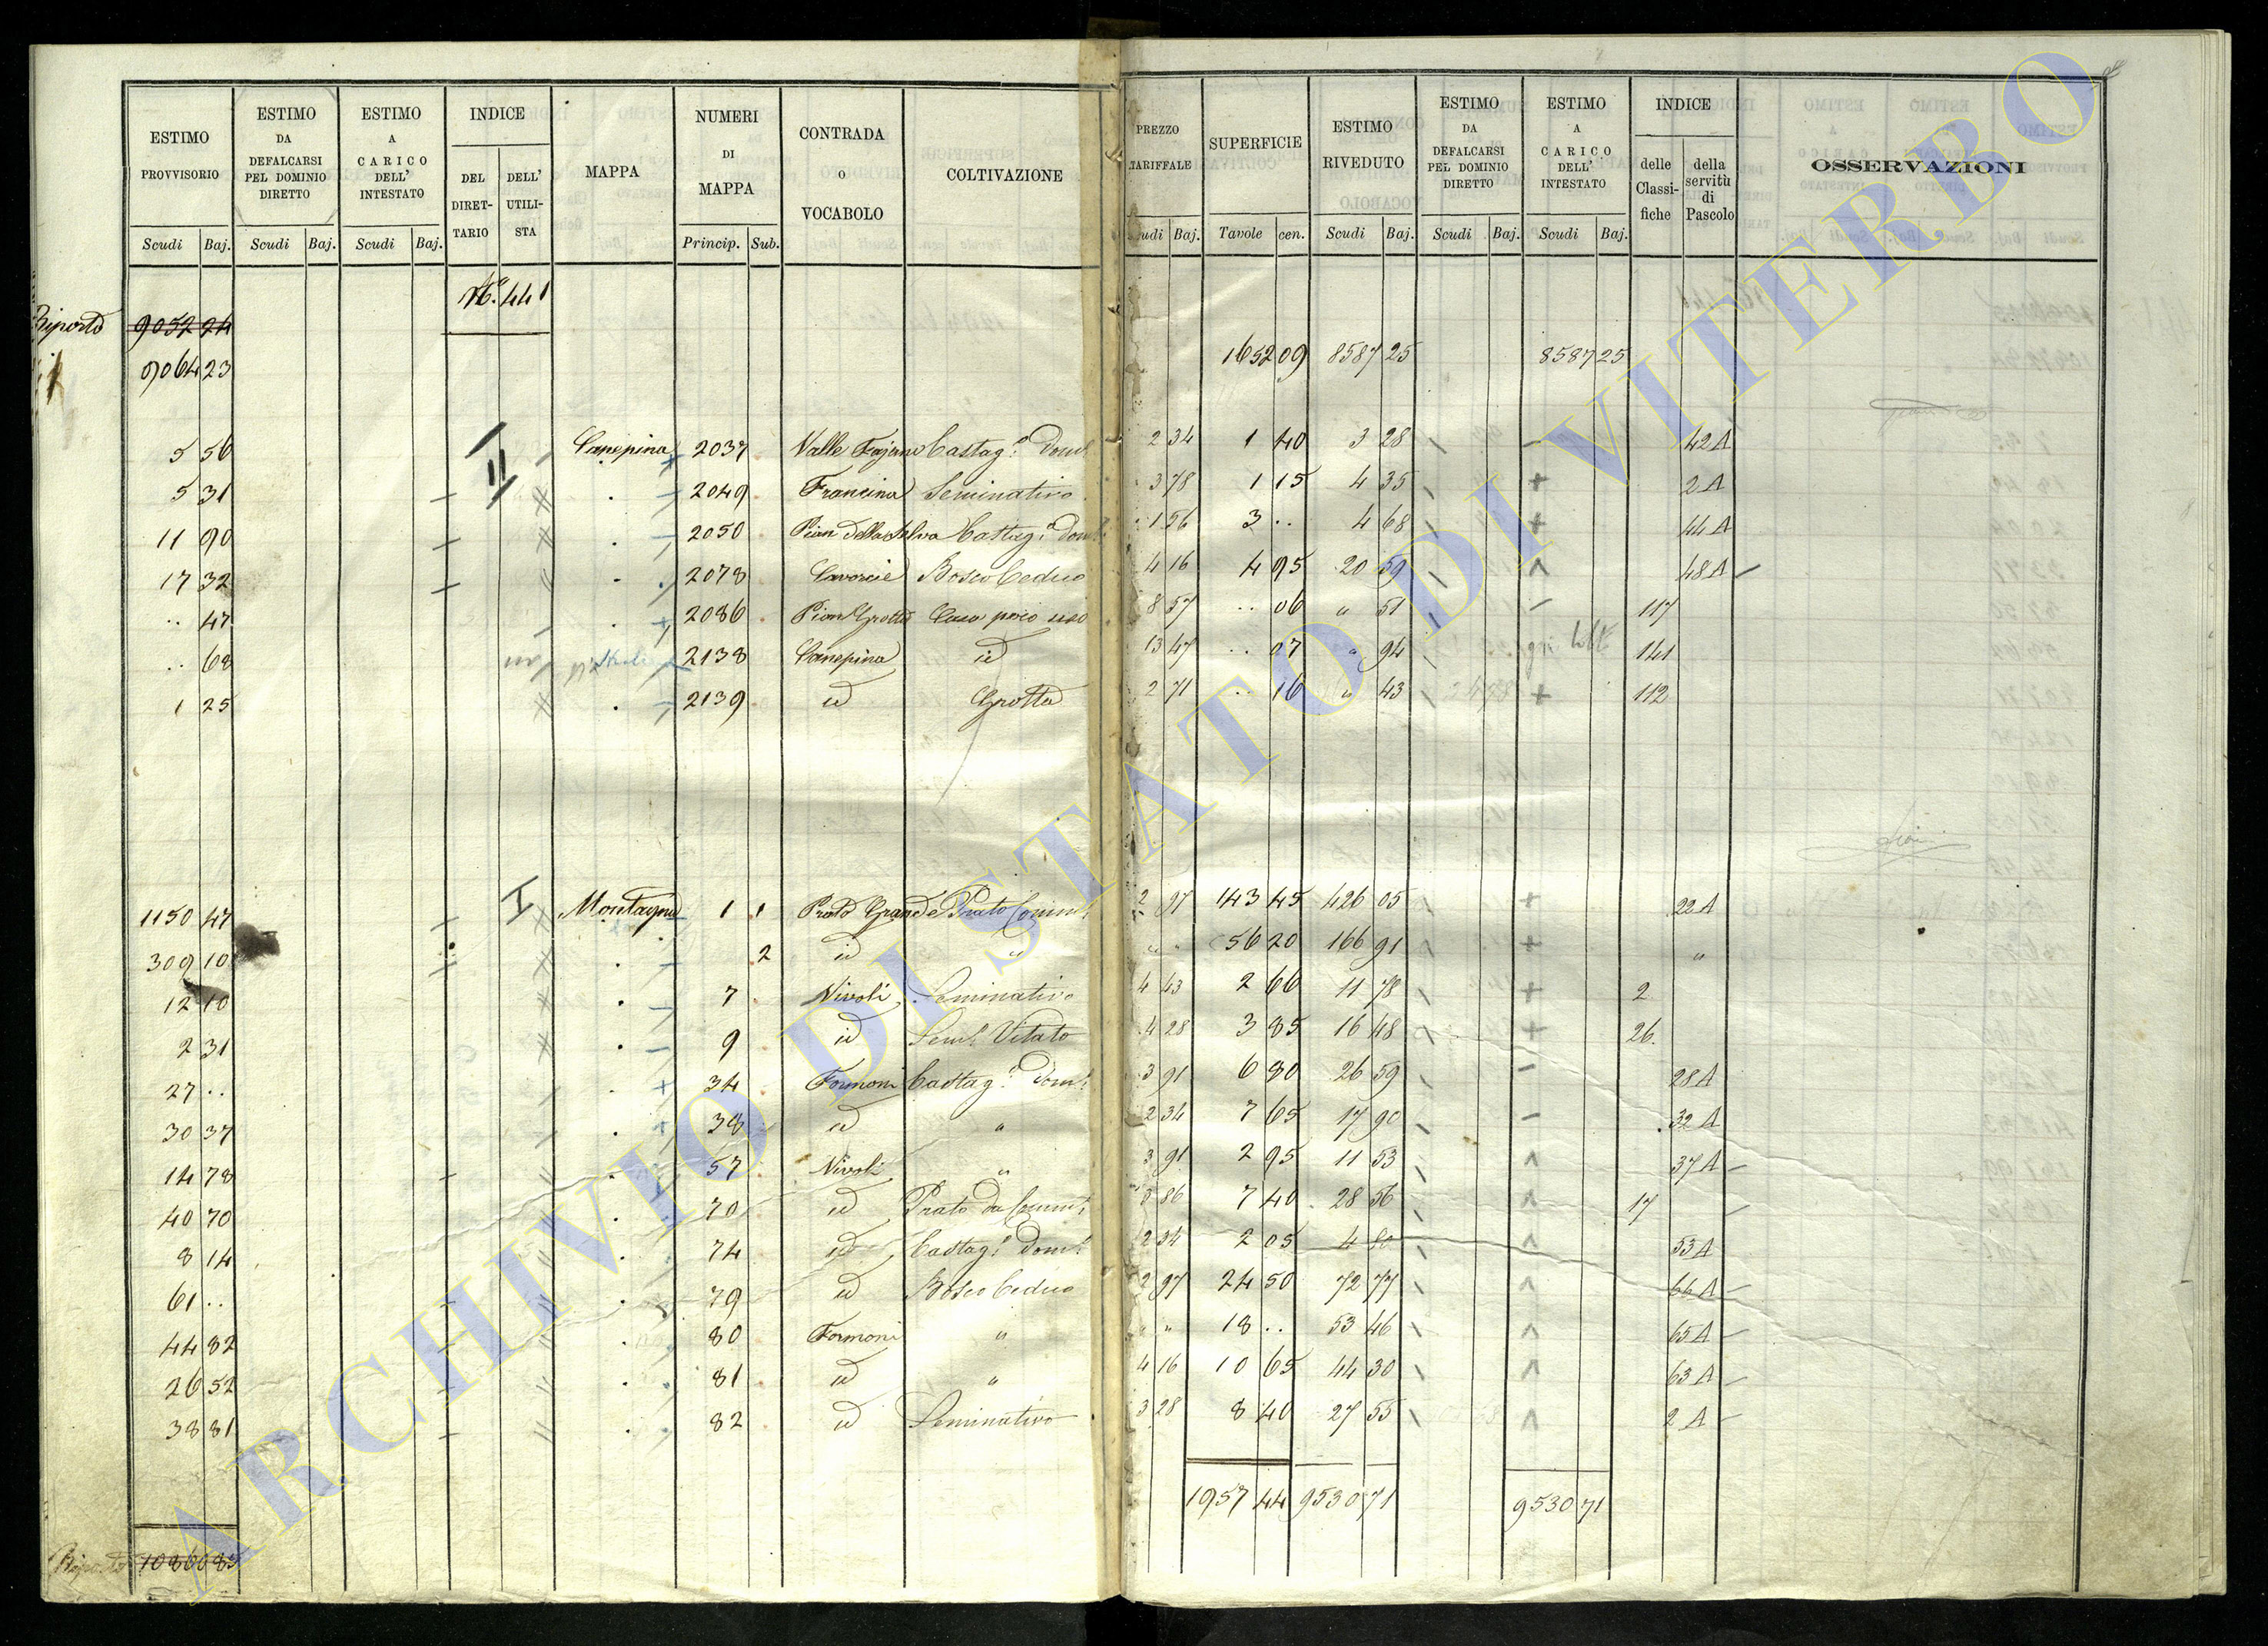 ESTIMO PROVVISORIO | ESTIMO DA DEFALCARSI PEL DOMINIO DIRETTO | ESTIMO A CARICO DELL' INTESTATO | INDICE | MAPPA | NUMERI DI MAPPA | CONTRADA O VOCABOLO | COLTIVAZIONE | PREZZO TARIFFALE | SUPERFICIE | ESTIMO RIVEDUTO | ESTIMO DA DEFALCARSI PEL DOMINIO DIRETTO | ESTIMO A CARICO DELL' INTESTATO | INDICE | OSSERVAZIONI
DEL DIRETTARIO | DELL' UTILISTA | delle Classifiche | della servitù di Pascolo
Scudi | Baj. | Scudi | Baj. | Scudi | Baj. | Princip. | Sub. | Scudi | Baj. | Tavole | cen. | Scudi | Baj. | Scudi | Baj. | Scudi | Baj.
N.° 441
Riporto 9052 24
9064 23 | 1652 09 | 8587 25 | 8587 25
5 56 | I | Canepina | 2037 | Valle Fajano | Castag.° Dom.° | 2 34 | 1 40 | 3 28 | 42 A
5 31 | II | 2049 | Francina | Seminativo | 3 78 | 1 15 | 4 35 | + | 2 A
11 90 | 2050 | Pian della Selva | Castag.° Dom.° | 1 56 | 3 .. | 4 68 | + | 44 A
17 32 | 2078 | Cavorcie | Bosco Ceduo | 4 16 | 4 95 | 20 59 | 48 A
.. 47 | 2086 | Pian Grotta | Casa poco uso | 8 57 | .. 06 | " 51 | 117
.. 68 | 2138 | Canepina | id | 13 47 | .. 07 | " 94 | 141
1 25 | 2139 | id | Grotta | 2 71 | .. 16 | " 43 | + | 112
1150 47 | I | Montagna | 1 | 1 | Prato Grande | Prato Comm.° | 2 97 | 143 45 | 426 05 | + | 22 A
309 10 | 2 | id | " | " " | 56 20 | 166 91 | + | "
12 10 | 7 | Nivoli | Seminativo | 4 43 | 2 66 | 11 78 | + | 2
2 31 | 9 | id | Sem.° Vitato | 4 28 | 3 85 | 16 48 | + | 26.
27 .. | 34 | Formoni | Castag.° Dom.° | 3 91 | 6 80 | 26 59 | 28 A
30 37 | 38 | id | " | 2 34 | 7 65 | 17 90 | 32 A
14 78 | 57 | Nivoli | " | 3 91 | 2 95 | 11 53 | 37 A
40 70 | 70 | id | Prato da Comm.° | 3 86 | 7 40 | 28 56 | 17
8 14 | 74 | id | Castag.° Dom.° | 2 34 | 2 05 | 4 80 | 53 A
61 .. | 79 | id | Bosco Ceduo | 2 97 | 24 50 | 72 77 | 66 A
44 82 | 80 | Formoni | " | " " | 18 .. | 53 46 | 65 A
26 52 | 81 | id | " | 4 16 | 10 65 | 44 30 | 63 A
38 81 | 82 | id | Seminativo | 3 28 | 8 40 | 27 55 | 2 A
1957 44 | 9530 71 | 9530 71
Riporto 10866 85
ARCHIVIO DI STATO DI VITERBO